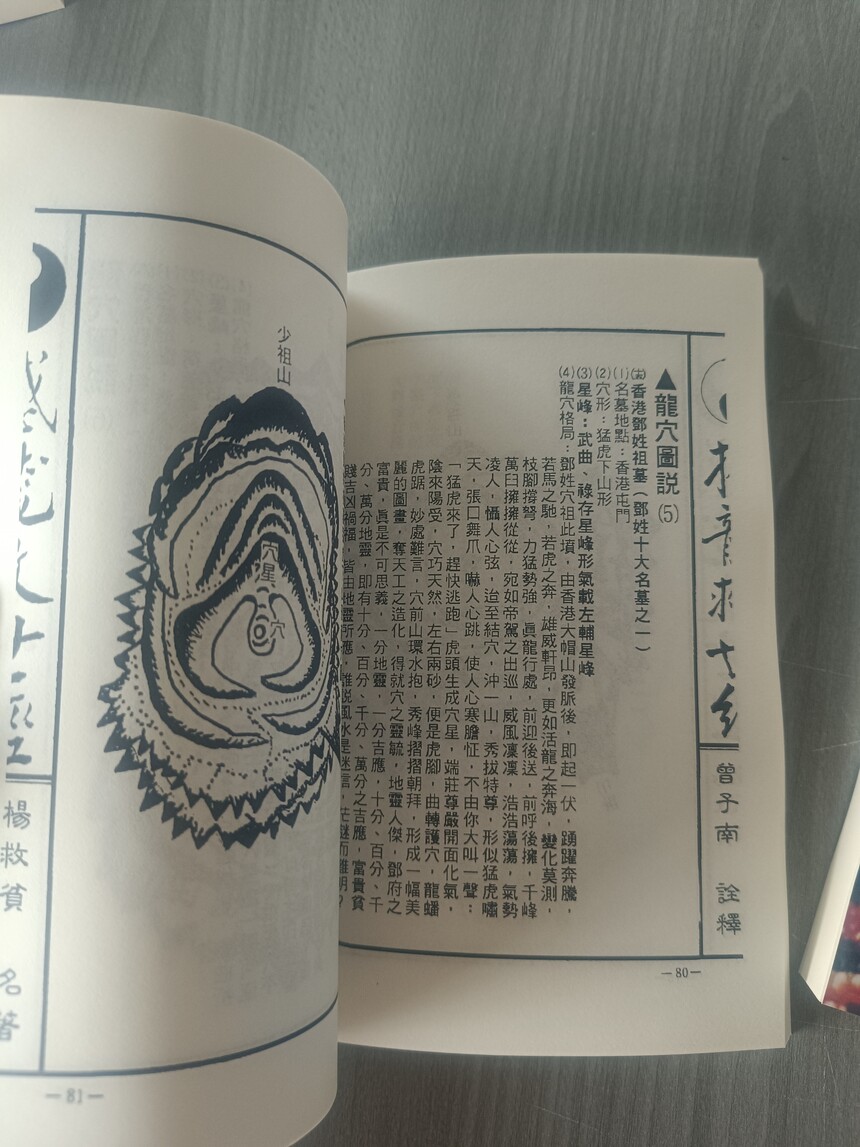 ▲龍穴圖説⑸
香港鄧姓祖墓（鄧姓十大名墓之一）
⑴名墓地點：香港屯門
⑵穴形：猛虎下山形
⑶星峰：武曲、祿存星峰形氣載左輔星峰
⑷龍穴格局：鄧姓穴祖此墳，由香港大帽山發脈後，即起一伏，踴躍奔騰，
若馬之馳，若虎之奔，雄威軒昂，更如活龍之奔海，變化莫測，
枝腳撐弩，力猛勢強，眞龍行處，前迎後送，前呼後擁，千峰
萬臼擁擁從從，宛如帝駕之出巡，威風凜凜，浩浩蕩蕩，氣勢
凌人，懾人心弦，迨至結穴，沖一山，秀拔特尊，形似猛虎嘯
天，張口舞爪，嚇人心跳，使人心寒膽怔，不由你大叫一聲：
「猛虎來了，趕快逃跑」虎頭生成穴星，端莊尊嚴開面化氣，
陰來陽受，穴巧天然，左右兩砂，便是虎腳，曲轉護穴，龍蟠
虎踞，妙處難言，穴前山環水抱，秀峰摺摺朝拜，形成一幅美
麗的圖畫，奪天工之造化，得就穴之靈毓，地靈人傑，鄧府之
富貴，眞是不可思義，一分地靈，一分吉應，十分、百分、千
分、萬分地靈，即有十分、百分、千分、萬分之吉應，富貴貧
賤吉凶禍福，皆由地靈所應，誰説風水是迷信，
曾子南 詮釋
—80—
少祖山
穴星
穴
楊救貧 名著
—81—